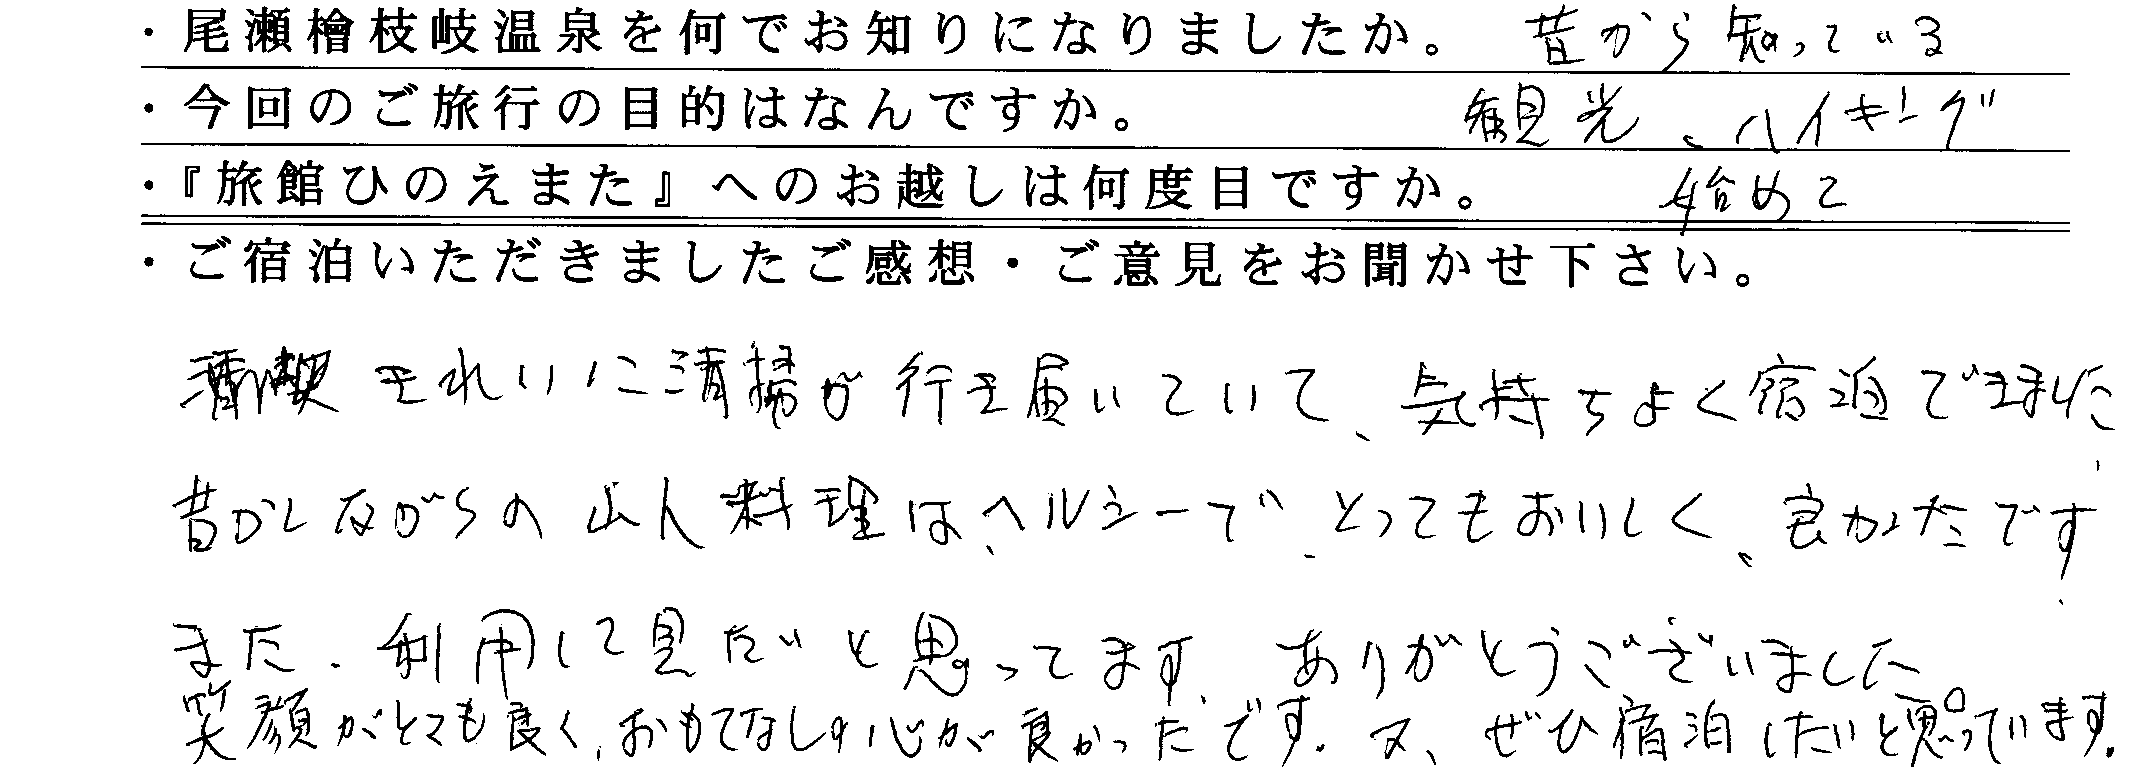 ・尾瀬檜枝岐温泉を何でお知りになりましたか。 昔から知っている
・今回のご旅行の目的はなんですか。 観光、ハイキング
・『旅館ひのえまた』へのお越しは何度目ですか。 始めて
・ご宿泊いただきましたご感想・ご意見をお聞かせ下さい。
きれいに清掃が行き届いていて、気持ちよく宿泊できました
昔かしながらの山人料理は、ヘルシーで、とってもおいしく、良かたです
また、利用して見たいと思ってます。ありがとうございました。
笑顔がとても良く、おもてなしの心が良かったです。又、ぜひ宿泊したいと思っています。